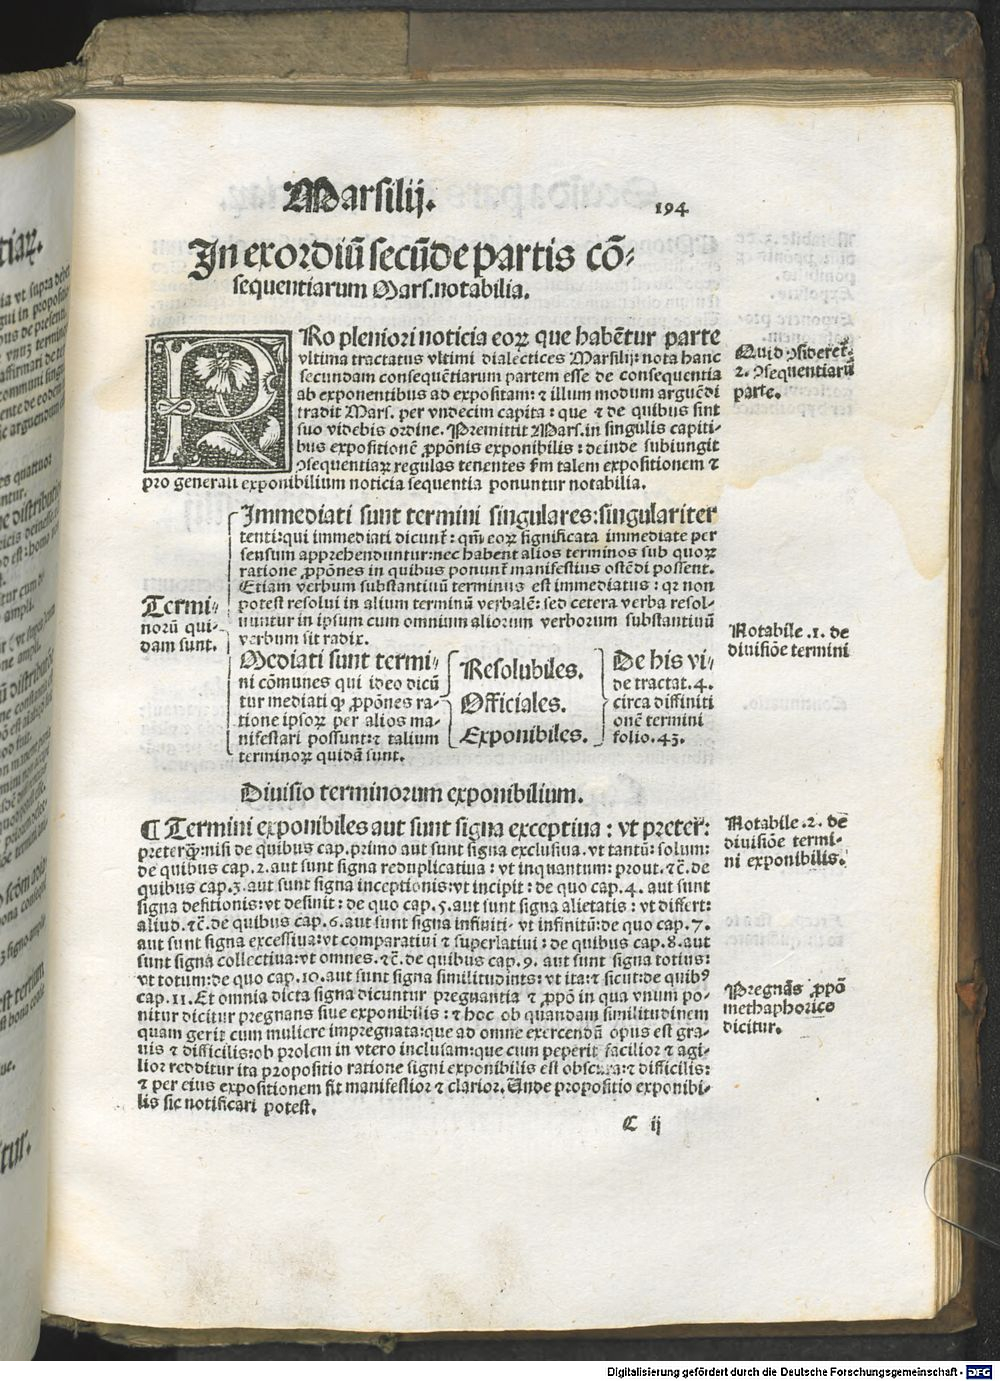 Marsilij.
194
In exordiū secūde partis cō-
sequentiarum Mars. notabilia.
PRo pleniori noticia eorꝝ que habētur parte
vltima tractatus vltimi dialectices Marsilij: nota hanc
secundam consequētiarum partem esse de consequentia
ab exponentibus ad expositam: ⁊ illum modum arguēdi
tradit Mars. per vndecim capita: que ⁊ de quibus sint
suo videbis ordine. Premittit Mars. in singulis capiti-
bus expositionē ꝓpōnis exponibilis: deinde subiungit
ↄsequentiaꝝ regulas tenentes fm talem expositionem ⁊
pro generali exponibilium noticia sequentia ponuntur notabilia.
Quid ↄsideret̄
2. ↄsequentiarū
parte.
Termi-
norū qui-
dam sunt.
Immediati sunt termini singulares: singulariter
tenti: qui immediati dicunt̄: qm̄ eoꝝ significata immediate per
sensum apprehenduntur: nec habent alios terminos sub quoꝝ
ratione ꝓpōnes in quibus ponunt̄ manifestius ostēdi possent.
Etiam verbum substantiuū terminus est immediatus: qr non
potest resolui in alium terminū verbalē: sed cetera verba resol-
uuntur in ipsum cum omnium aliorum verborum substantiuū
verbum sit radix.
Mediati sunt termi-
ni cōmunes qui ideo dicū
tur mediati qꝫ ꝓpōnes ra-
tione ipsoꝝ per alios ma-
nifestari possunt: ⁊ talium
terminoꝝ quidā sunt.
Resolubiles.
Officiales.
Exponibiles.
De his vi-
de tractat. 4.
circa diffiniti
onē termini
folio. 43.
Notabile .1. de
diuisiōe termini
Diuisio terminorum exponibilium.
¶ Termini exponibiles aut sunt signa exceptiua: vt preter:
preterqꝫ: nisi de quibus cap. primo aut sunt signa exclusiua. vt tantū: solum:
de quibus cap. 2. aut sunt signa reduplicatiua: vt inquantum: prout. ⁊c̄. de
quibus cap. 3. aut sunt signa inceptionis: vt incipit: de quo cap. 4. aut sunt
signa desitionis: vt desinit: de quo cap. 5. aut sunt signa alietatis: vt differt:
aliud. ⁊c̄. de quibus cap. 6. aut sunt signa infiniti. vt infinitū: de quo cap. 7.
aut sunt signa excessiua: vt comparatiui ⁊ superlatiui: de quibus cap. 8. aut
sunt signa collectiua: vt omnes. ⁊c̄. de quibus cap. 9. aut sunt signa totius:
vt totum: de quo cap. 10. aut sunt signa similitudinis: vt ita: ⁊ sicut: de quibꝰ
cap. 11. Et omnia dicta signa dicuntur pregnantia ⁊ ꝓpō in qua vnum po-
nitur dicitur pregnans siue exponibilis: ⁊ hoc ob quandam similitudinem
quam gerit cum muliere impregnata: que ad omne exercendū opus est gra-
uis ⁊ difficilis: ob prolem in vtero inclusam: que cum peperit facilior ⁊ agi-
lior redditur ita propositio ratione signi exponibilis est obscura: ⁊ difficilis:
⁊ per eius expositionem fit manifestior ⁊ clarior. Unde propositio exponibi-
lis sic notificari potest.
Notabile .2. de
diuisiōe termi-
ni exponibilis.
Pregnās ꝓpō
methaphorice
dicitur.
C ij
Digitalisierung gefördert durch die Deutsche Forschungsgemeinschaft - DFG